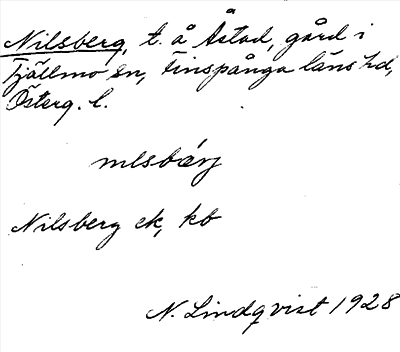 Nilsberg, t. å Åstad, gård i
Tjällmo sn, Finspånga läns hd,
Österg. l.
nɩlsbærj
Nilsberg ek, kb
N. Lindqvist 1928